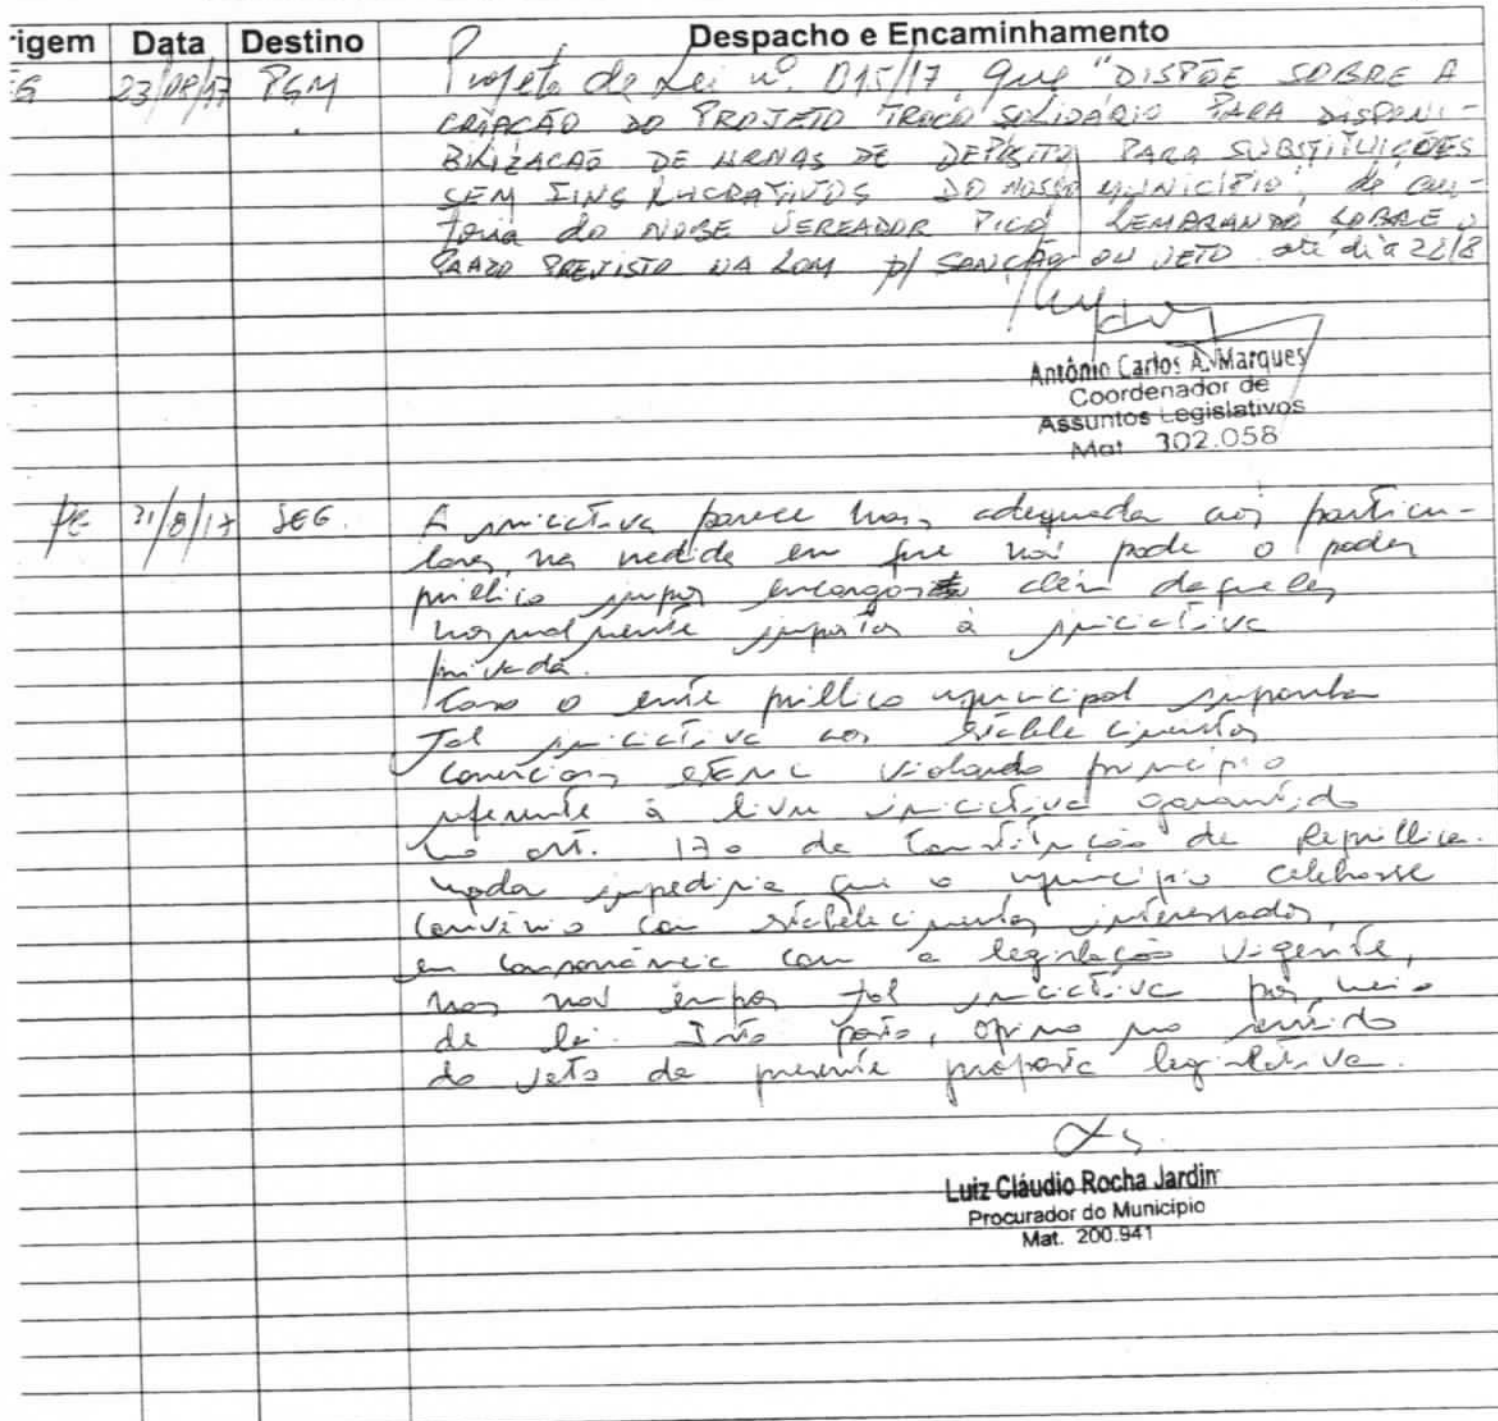 rigem Data Destino Despacho e Encaminhamento
EG 23/08/17 PGM Projeto de Lei nº. 015/17, que "DISPÕE SOBRE A
CRIAÇÃO DO PROJETO TROCO SOLIDÁRIO PARA DISPONI-
BILIZAÇÃO DE URNAS DE DEPÓSITO PARA SUBSTITUIÇÕES
SEM FINS LUCRATIVOS DO NOSSO MUNICÍPIO", de au-
toria do NOBE VEREADOR PICO, LEMBRANDO SOBRE O
PRAZO PREVISTO NA LOM p/ SANÇÃO OU VETO até dia
Antônio Carlos A. Marques
Coordenador de
Assuntos Legislativos
Mat 302.058
31/8/17 SEG. A iniciativa parece mais adequada aos particu-
lares, na medida em que não pode o poder
público impor encargos além daqueles
normalmente impostos à iniciativa
privada.
Caso o ente público municipal imponha
tal iniciativa aos estabelecimentos
comerciais, estará violando princípio
referente à livre iniciativa garantido
no art. 170 da Constituição da República.
Nada impediria que o município celebrasse
convênio com estabelecimentos interessados,
em consonância com a legislação vigente,
mas não impor tal iniciativa por meio
de lei. Isto posto, opino no sentido
do veto da presente proposta legislativa.
Luiz Cláudio Rocha Jardim
Procurador do Município
Mat. 200.941